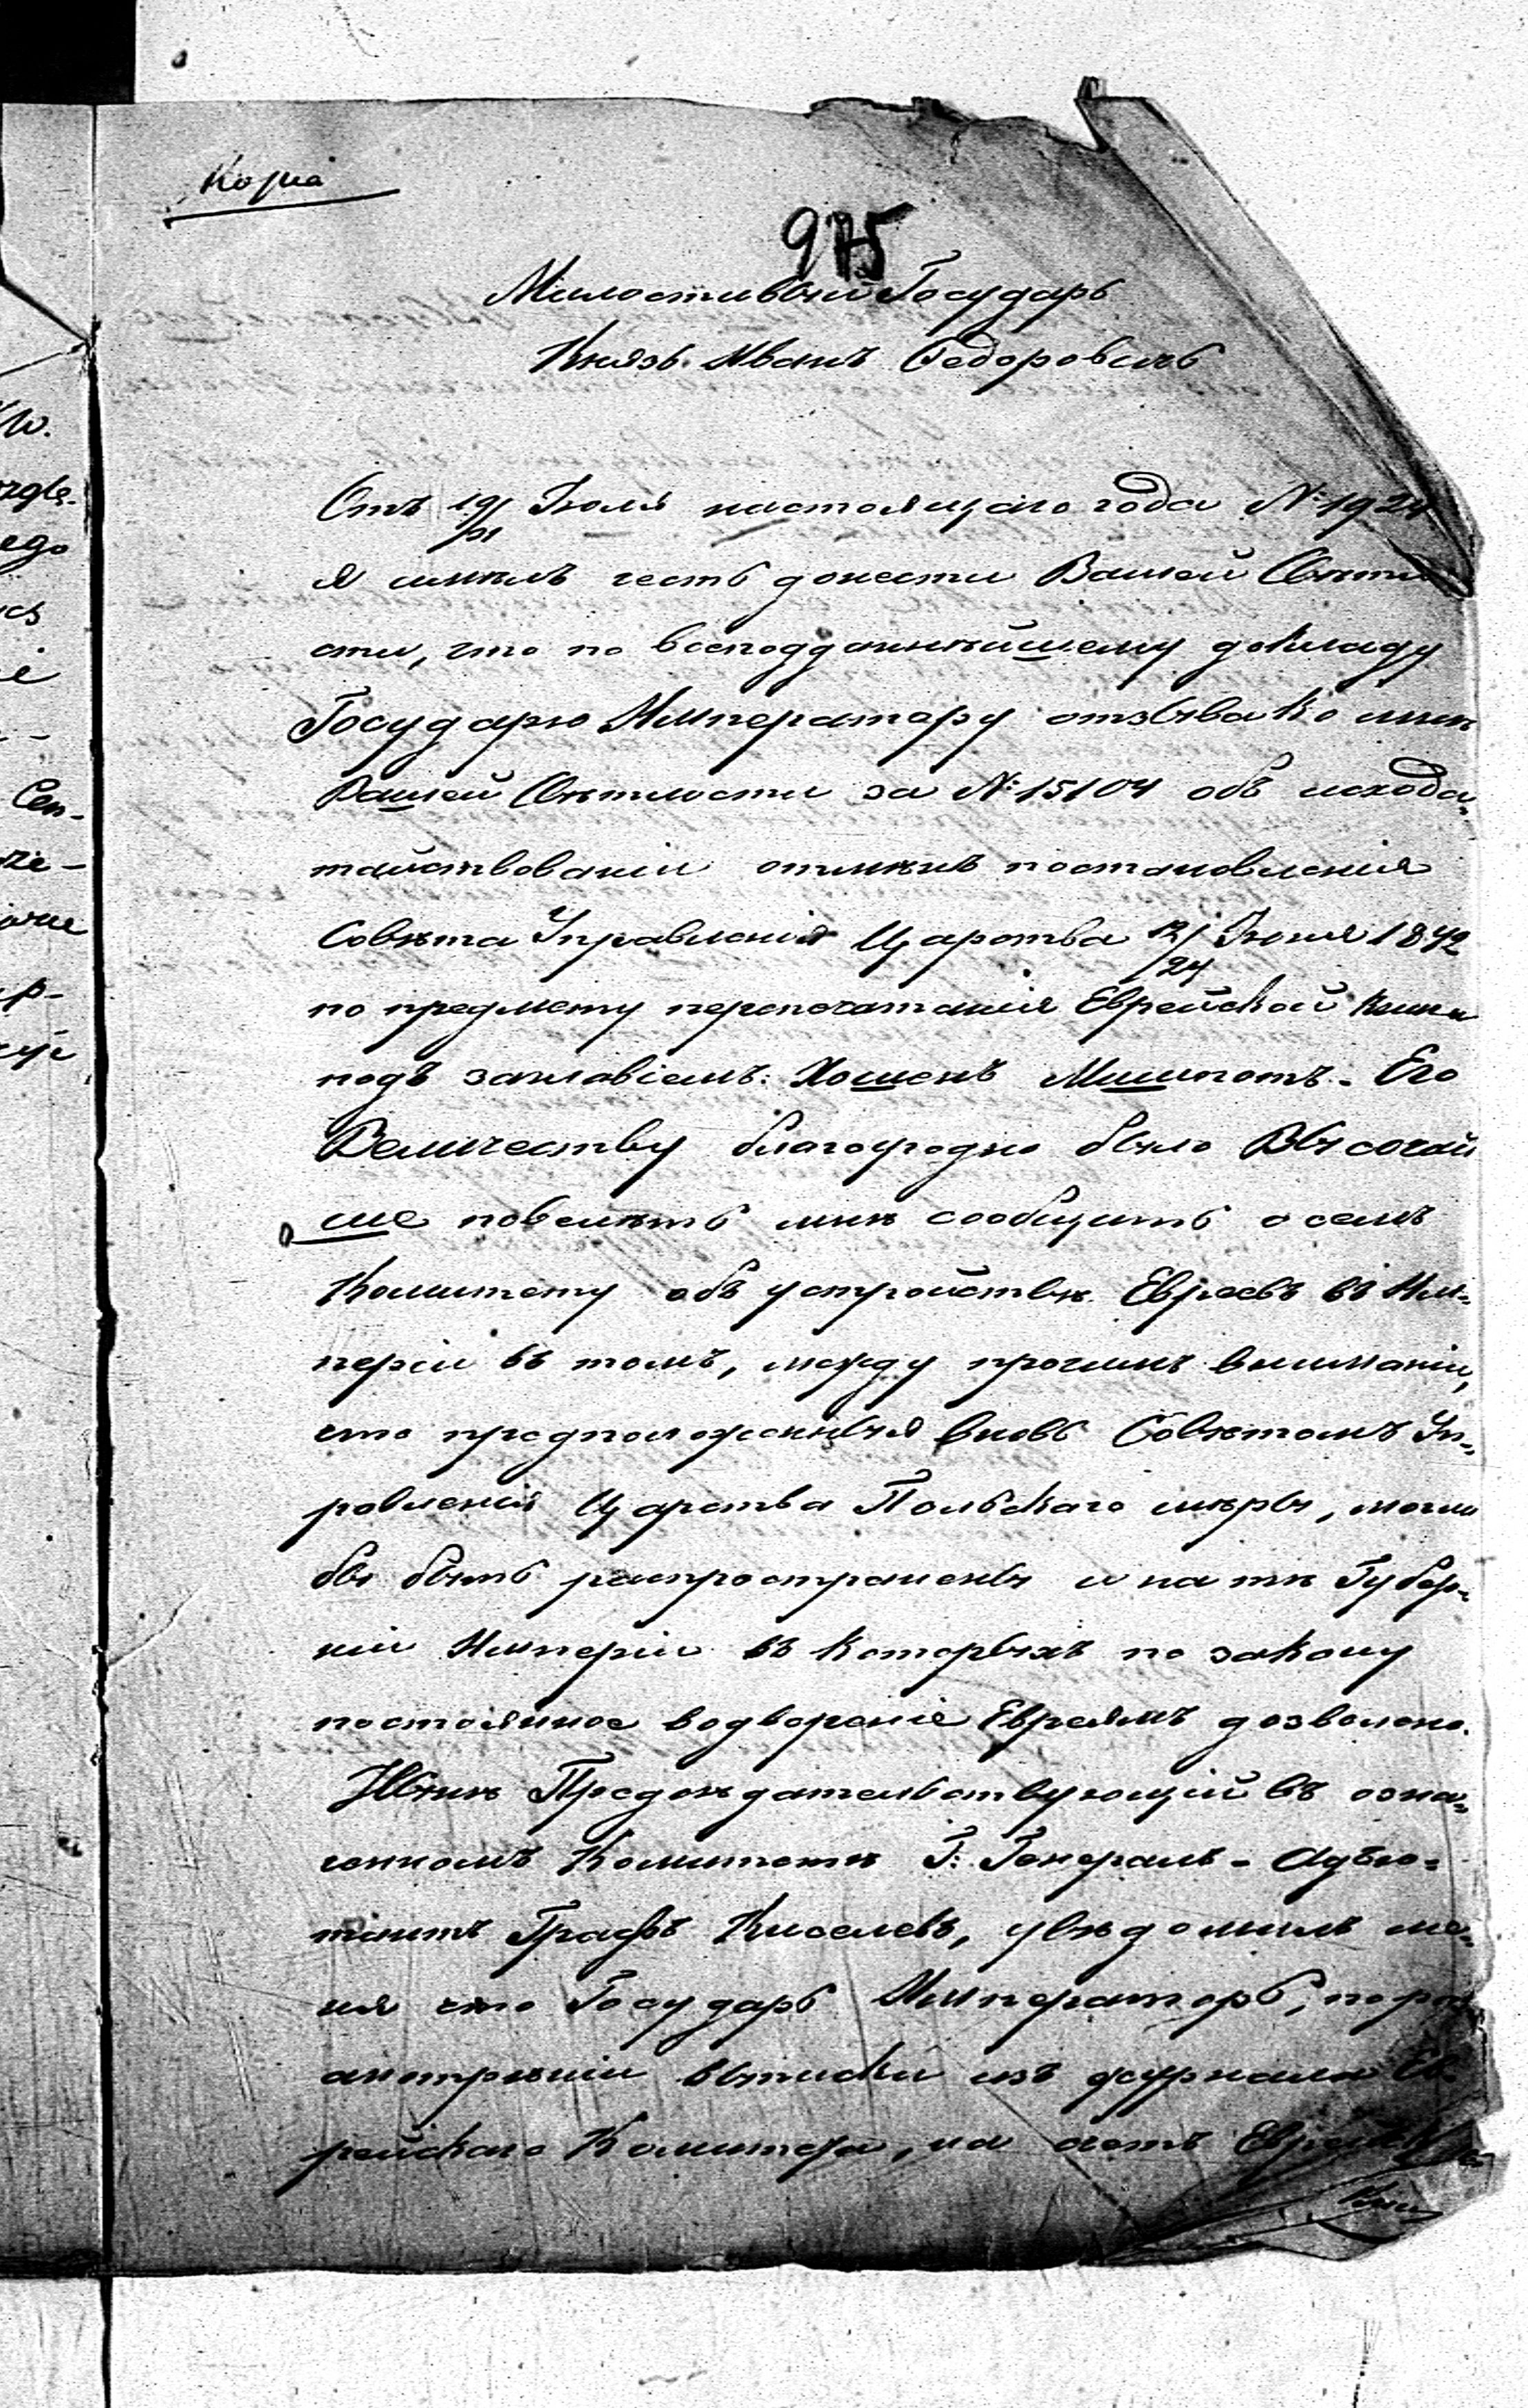 Копія
975
Милостивый Государь
Князь Иванъ Ѳедоровичъ
Отъ 19/31 Іюля настоящаго года №1924
я имѣлъ честь донести Вашей Свѣтло
сти, что по всеподданнѣйшему докладу
Государю Императору отзыва ко мнѣ
Вашей Свѣтлости за №15104 объ исхода„
тайствованіи отмѣнъ постановленія
Совѣта Управленія Царства 12/24 Іюня 1842
по предмету перепечатанія Еврейской книги
подъ заглавіемъ: Хошенъ Мишпотъ. Его
Величеству благоугодно было Высочай
ше повелѣть мнѣ сообщить о семъ
Комитету объ устройствѣ Евреевъ въ Им„
періи въ томъ, между прочимъ вниманіи,
что предположенныя вновь Совѣтомъ Уп„
равленія Царства Польскаго мѣры, могли
бы быть распространены и на тѣ Губер„
ніи Имперіи въ которыхъ по закону
постоянное водвореніе Евреямъ дозволено.
Нынѣ Предсѣдательствующій въ озна„
ченномъ Комитетѣ Г: Генералъ-Адъю„
тантъ Графъ Киселевъ, увѣдомилъ ме„
ня что Государь Императоръ, по раз
смотрѣніи выписки изъ журнала Ев„
рейскаго Комитета, на счетъ